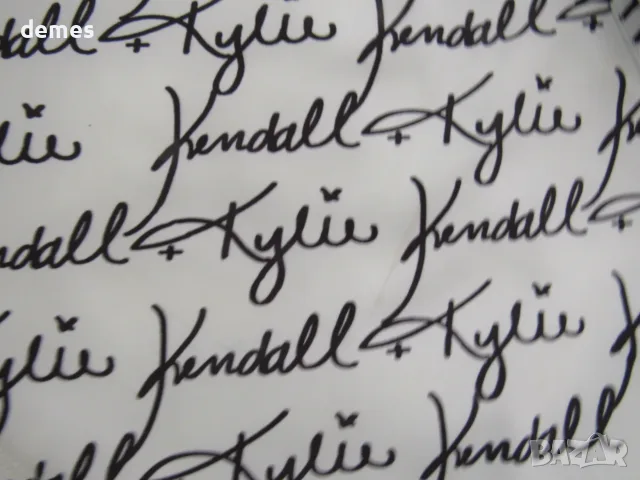 demes
dall + Kylie Kendall +
lie Kendall + Kylie
ndall + Kylie Kendall +
ylie Kendall + Kylie
dall + Kylie Kendall
BAZAR